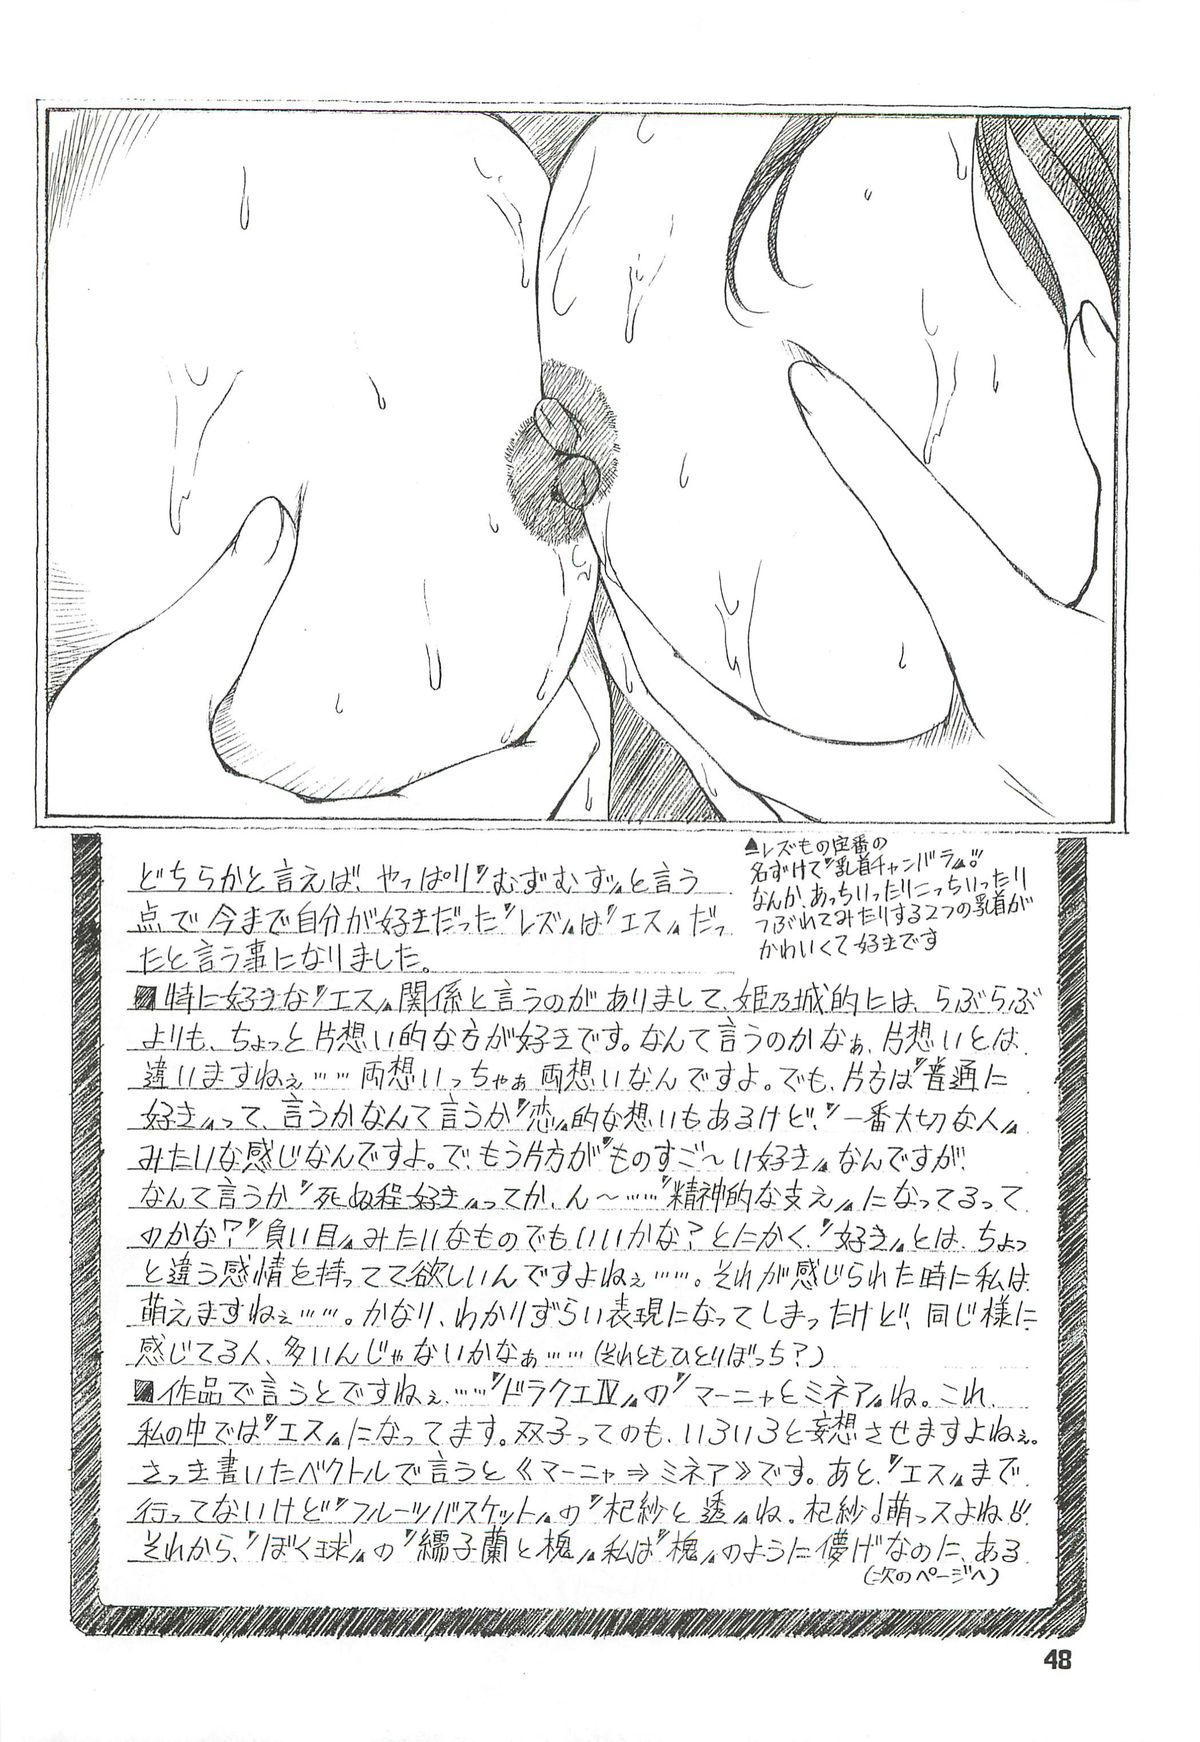 どちらかと言えば、やっぱり〝むずむずッ〟と言う
点で今まで自分が好きだった〝レズ〟は〝エス〟だっ
たと言う事になりました。
▲レズもの定番の
名ずけて〝乳首チャンバラ〟!!
なんか、あっちいったりこっちいったり
つぶれてみたりする2つの乳首が
かわいくて好きです
■特に好きな〝エス〟関係と言うのがありまして、姫乃城的には、らぶらぶ
よりも、ちょっと片想い的な方が好きです。なんて言うのかなぁ、片想いとは
違いますねぇ……両想いっちゃぁ両想いなんですよ。でも、片方は〝普通に
好き〟って、言うかなんて言うか〝恋〟的な想いもあるけど、〝一番大切な人〟
みたいな感じなんですよ。で、もう片方が〝ものすご〜い好き〟なんですが、
なんて言うか〝死ぬ程好き〟ってか、ん〜……〝精神的な支え〟になってるって
のかな?〝負い目〟みたいなものでもいいかな?とにかく、〝好き〟とは、ちょっ
と違う感情を持ってて欲しいんですよねぇ……。それが感じられた時に私は
萌えますねぇ……。かなり、わかりずらい表現になってしまったけど、同じ様に
感じてる人、多いんじゃないかなぁ……(それともひとりぼっち?)
■作品で言うとですねぇ……〝ドラクエⅣ〟の〝マーニャとミネア〟ね。これ、
私の中では〝エス〟になってます。双子ってのも、いろいろと妄想させますよねぇ。
さっき書いたベクトルで言うと《マーニャ⇒ミネア》です。あと、〝エス〟まで
行ってないけど〝フルーツバスケット〟の〝杞紗と透〟ね。杞紗!萌っスよね!!
それから、〝ぼく球〟の〝繻子蘭と槐〟私は〝槐〟のように儚げなのに、ある
(次のページへ)
48